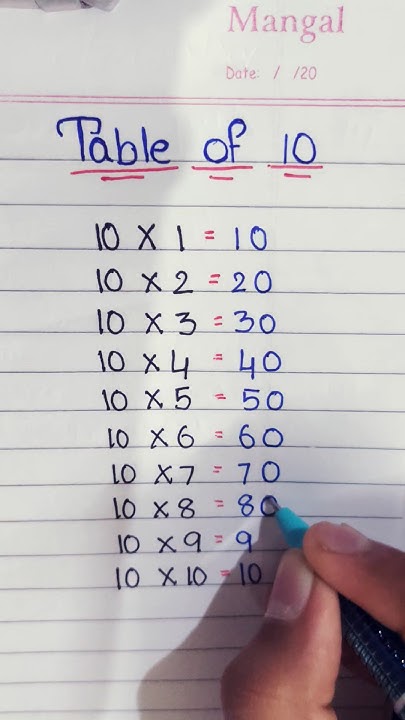 Mangal
Date: / /20
Table of 10
10 X 1 = 10
10 X 2 = 20
10 X 3 = 30
10 X 4 = 40
10 X 5 = 50
10 X 6 = 60
10 X 7 = 70
10 X 8 = 80
10 X 9 = 9
10 X 10 = 10